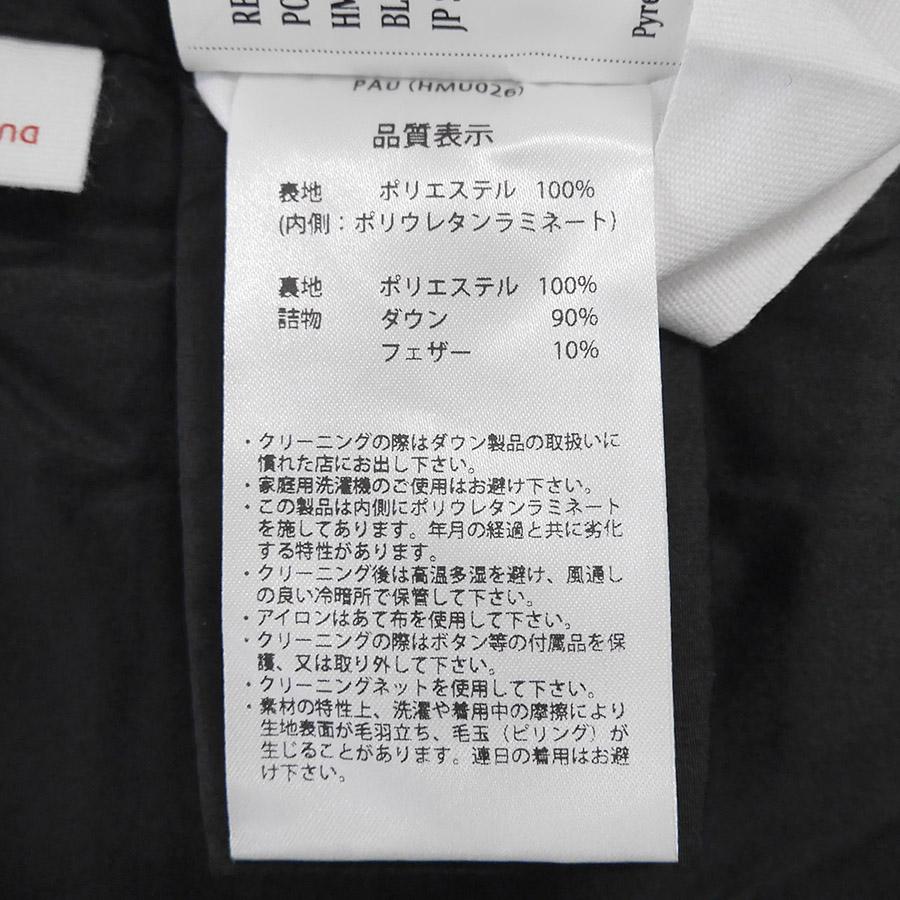 RE
PO
HM
BL
JP S
Pyre
PAU (HMU026)
品質表示
表地 ポリエステル 100%
(内側：ポリウレタンラミネート)
裏地 ポリエステル 100%
詰物 ダウン 90%
フェザー 10%
・クリーニングの際はダウン製品の取扱いに
慣れた店にお出し下さい。
・家庭用洗濯機のご使用はお避け下さい。
・この製品は内側にポリウレタンラミネート
を施してあります。年月の経過と共に劣化
する特性があります。
・クリーニング後は高温多湿を避け、風通し
の良い冷暗所で保管して下さい。
・アイロンはあて布を使用して下さい。
・クリーニングの際はボタン等の付属品を保
護、又は取り外して下さい。
・クリーニングネットを使用して下さい。
・素材の特性上、洗濯や着用中の摩擦により
生地表面が毛羽立ち、毛玉（ピリング）が
生じることがあります。連日の着用はお避
け下さい。